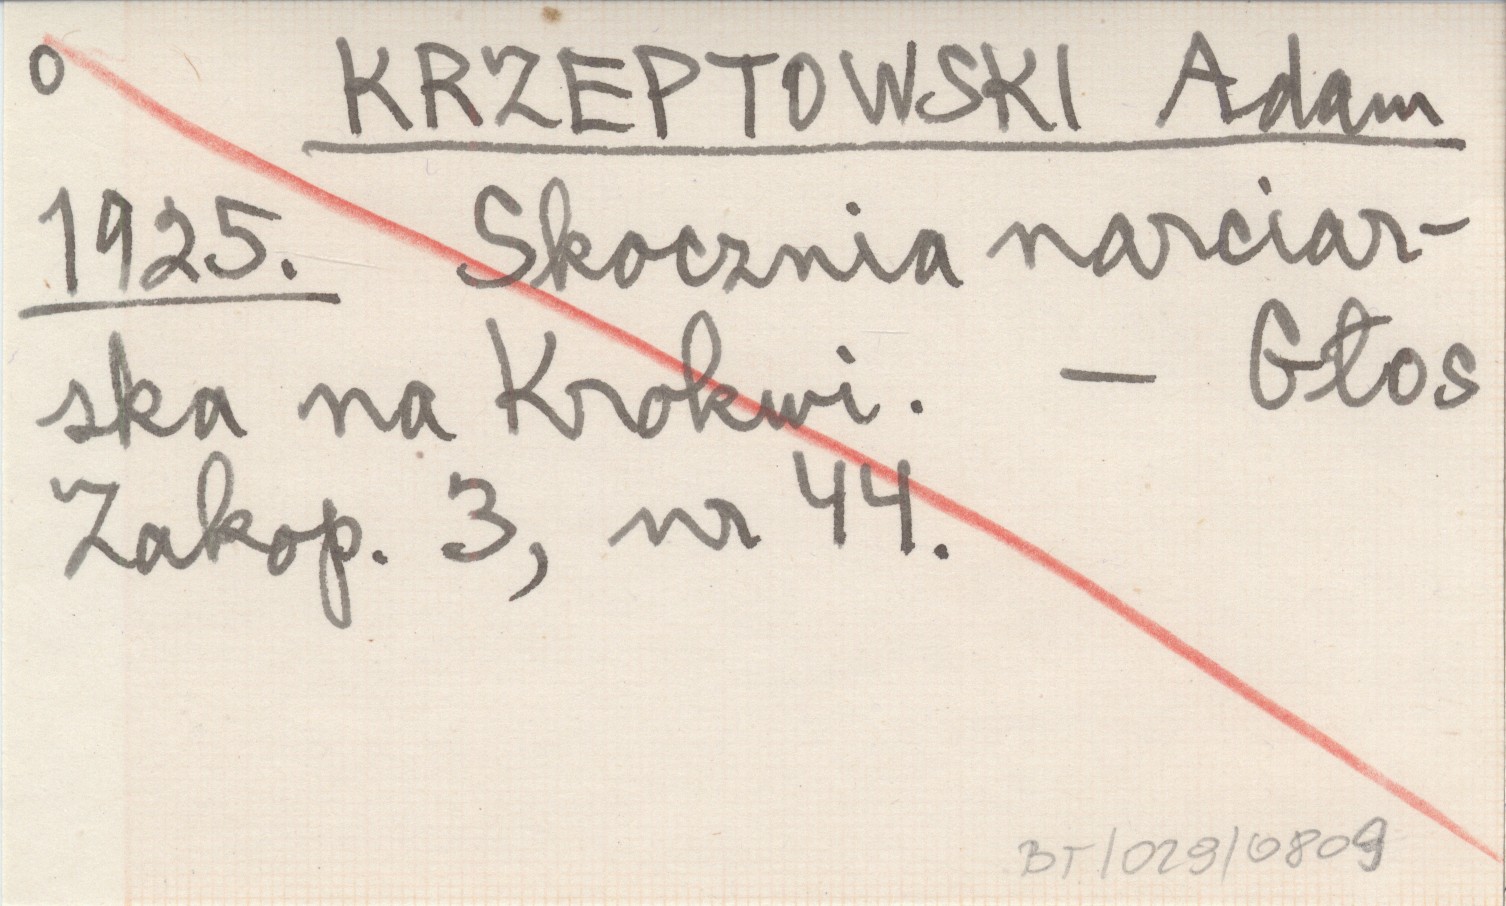 o KRZEPTOWSKI Adam
1925. Skocznia narciar-
ska na Krokwi. — Głos
Zakop. 3, nr 44.
BT/029/0809